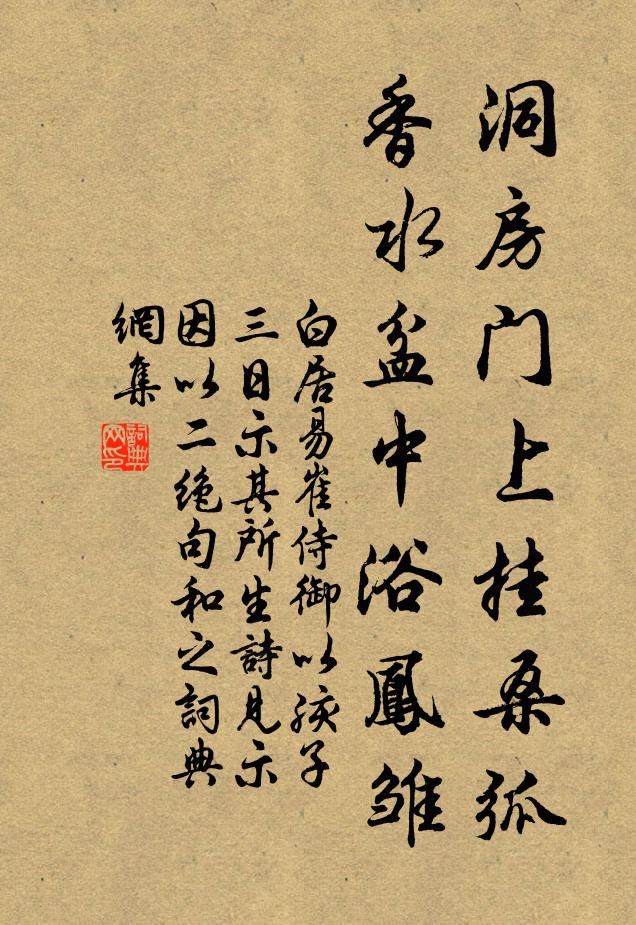 洞房门上挂桑弧
香水盆中浴鳳雏
白居易崔侍御以孩子
三日示其所生詩見示
因以二绝句和之詞典
網集
詞典
网印